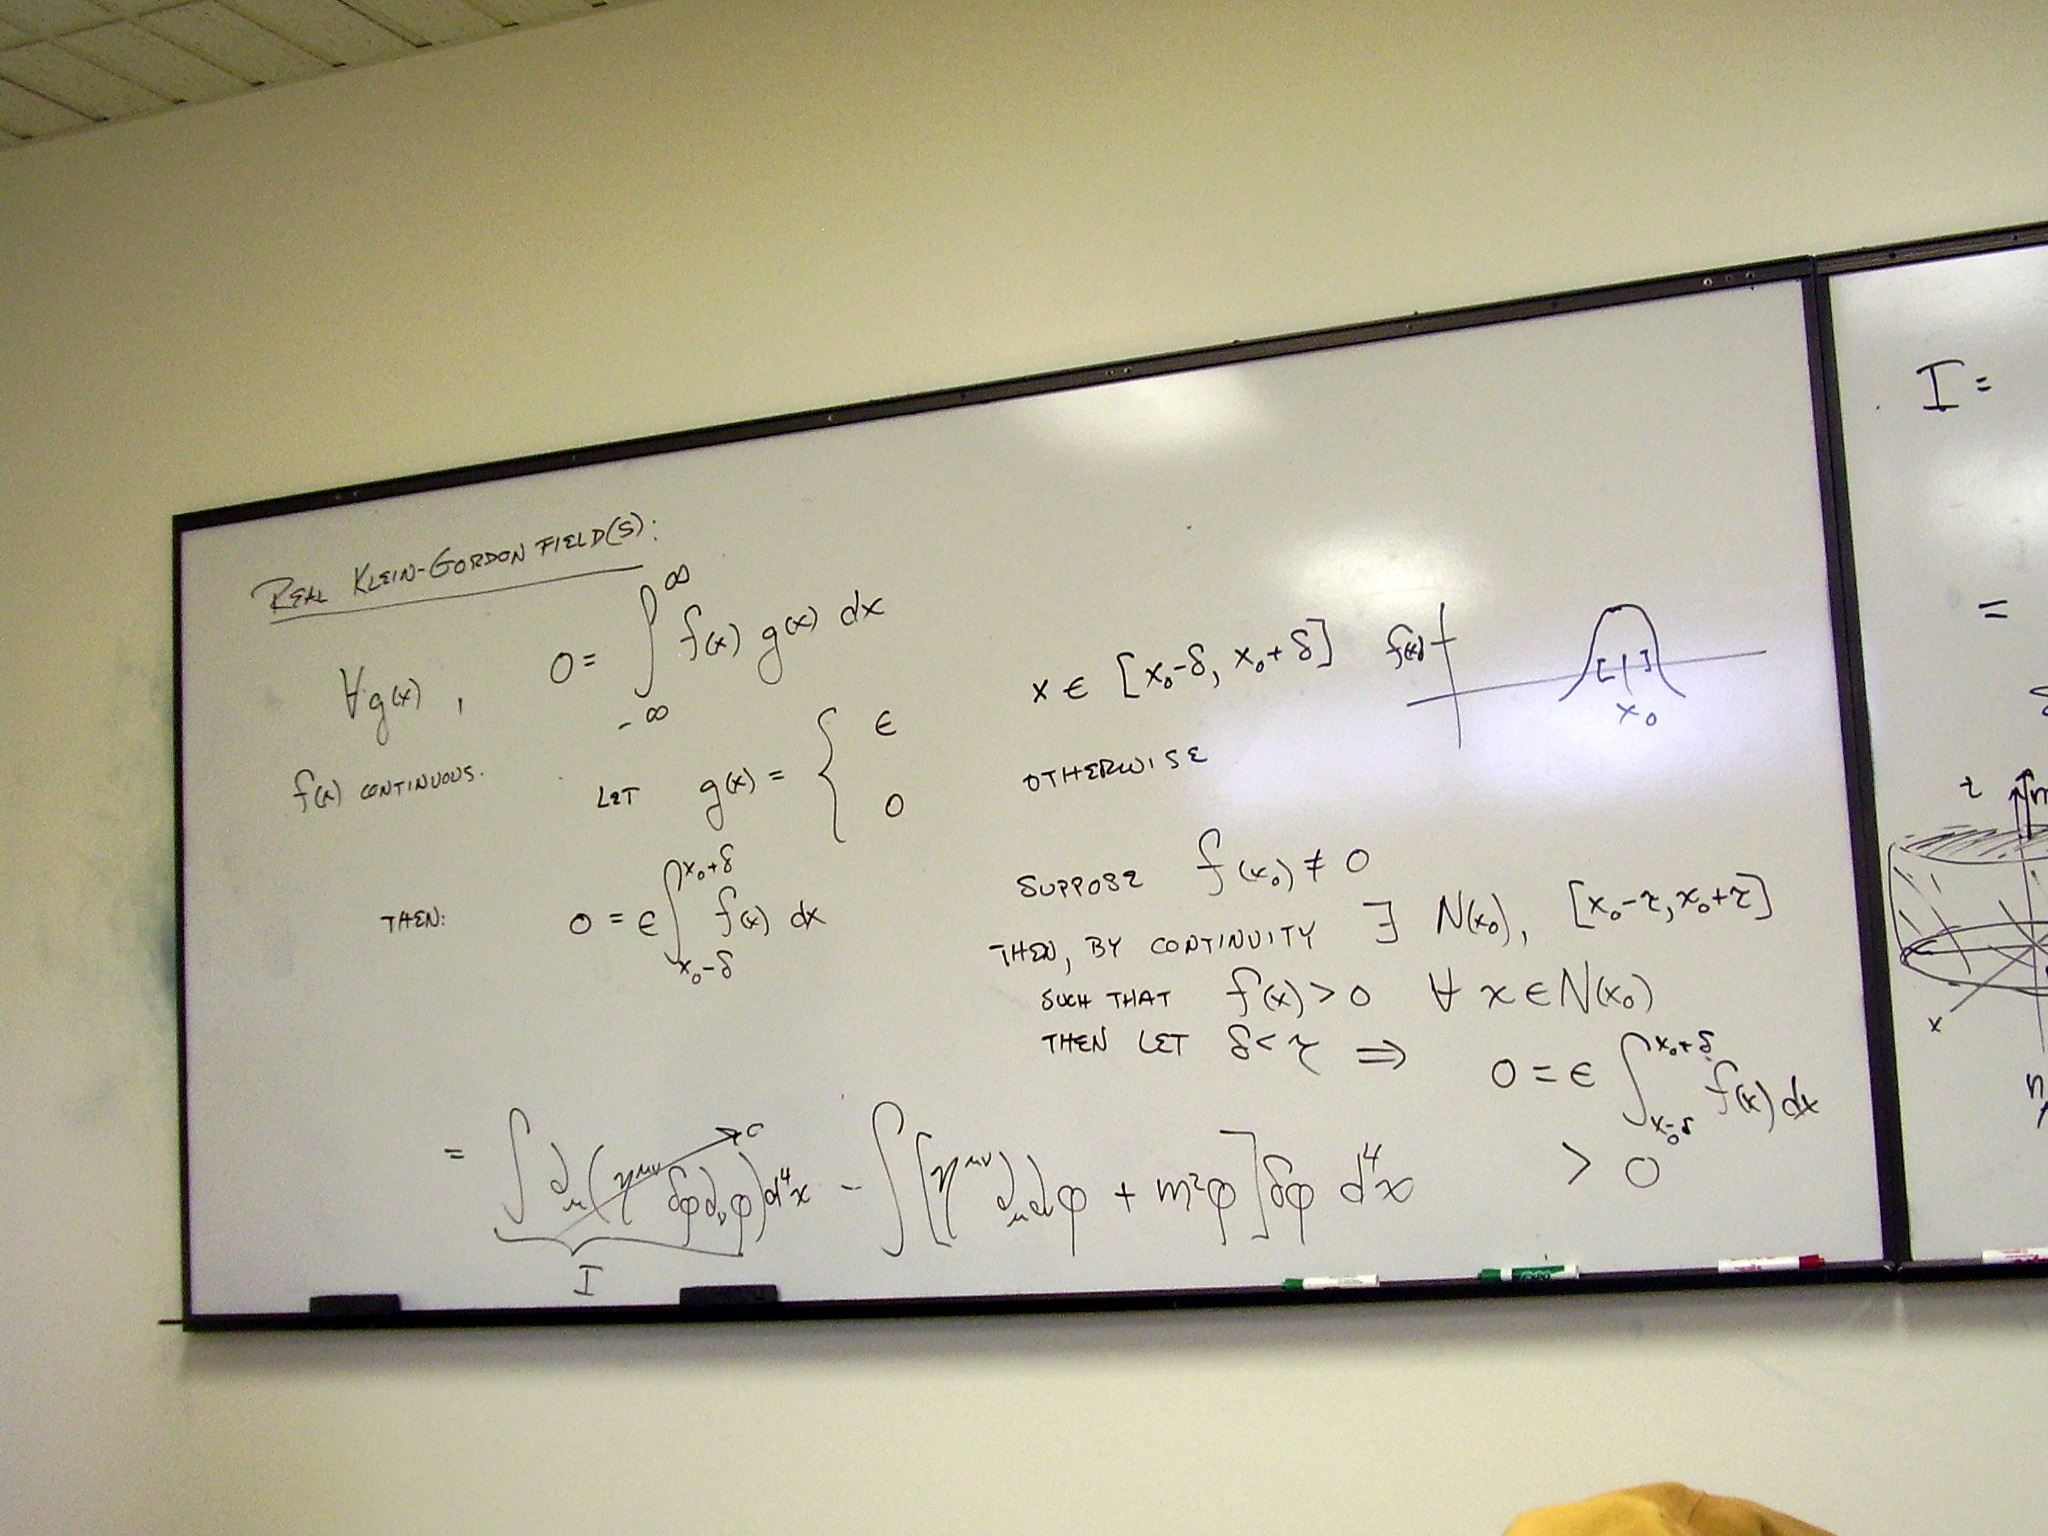 REAL KLEIN-GORDON FIELD(S):
∀g(x), 0 = ∫_{-∞}^{∞} f(x) g(x) dx
f(x) CONTINUOUS.
LET g(x) = { ε x ∈ [x₀-δ, x₀+δ]
0 OTHERWISE
f(x)
[ | ]
x₀
THEN: 0 = ε ∫_{x₀-δ}^{x₀+δ} f(x) dx
SUPPOSE f(x₀) ≠ 0
THEN, BY CONTINUITY ∃ N(x₀), [x₀-τ, x₀+τ]
SUCH THAT f(x) > 0 ∀ x ∈ N(x₀)
THEN LET δ < τ ⇒ 0 = ε ∫_{x₀-δ}^{x₀+δ} f(x) dx
> 0
= ∫ ∂_μ(η^{μν} δφ ∂_ν φ) d⁴x - ∫ [η^{μν} ∂_μ ∂_ν φ + m²φ] δφ d⁴x
I
I =
=
z
x